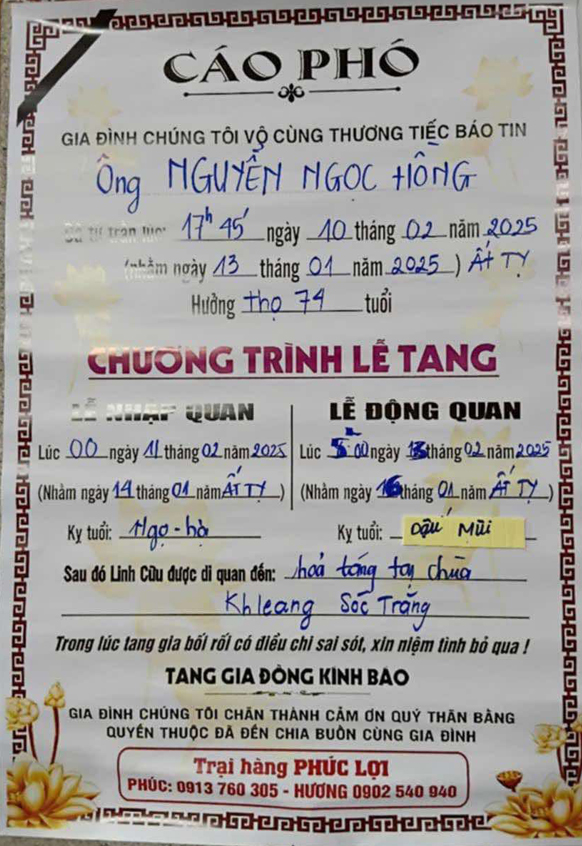 CÁO PHÓ
GIA ĐÌNH CHÚNG TÔI VÔ CÙNG THƯƠNG TIẾC BÁO TIN
Ông NGUYỄN NGỌC HỒNG
Đã từ trần lúc: 17h 45' ngày 10 tháng 02 năm 2025
(nhằm ngày 13 tháng 01 năm 2025) ẤT TỴ
Hưởng thọ 74 tuổi
CHƯƠNG TRÌNH LỄ TANG
LỄ NHẬP QUAN
Lúc 00 ngày 11 tháng 02 năm 2025
(Nhằm ngày 14 tháng 01 năm ẤT TỴ)
Kỵ tuổi: Ngọ - hợi
LỄ ĐỘNG QUAN
Lúc 00 ngày 13 tháng 02 năm 2025
(Nhằm ngày 16 tháng 01 năm ẤT TỴ)
Kỵ tuổi: Dậu Mũi
Sau đó Linh Cữu được di quan đến: hoả táng tại chùa
Khleang Sóc Trăng
Trong lúc tang gia bối rối có điều chi sai sót, xin niệm tình bỏ qua !
TANG GIA ĐỒNG KÍNH BÁO
GIA ĐÌNH CHÚNG TÔI CHÂN THÀNH CẢM ƠN QUÝ THÂN BẰNG
QUYẾN THUỘC ĐÃ ĐẾN CHIA BUỒN CÙNG GIA ĐÌNH
Trại hàng PHÚC LỢI
PHÚC: 0913 760 305 - HƯƠNG 0902 540 940